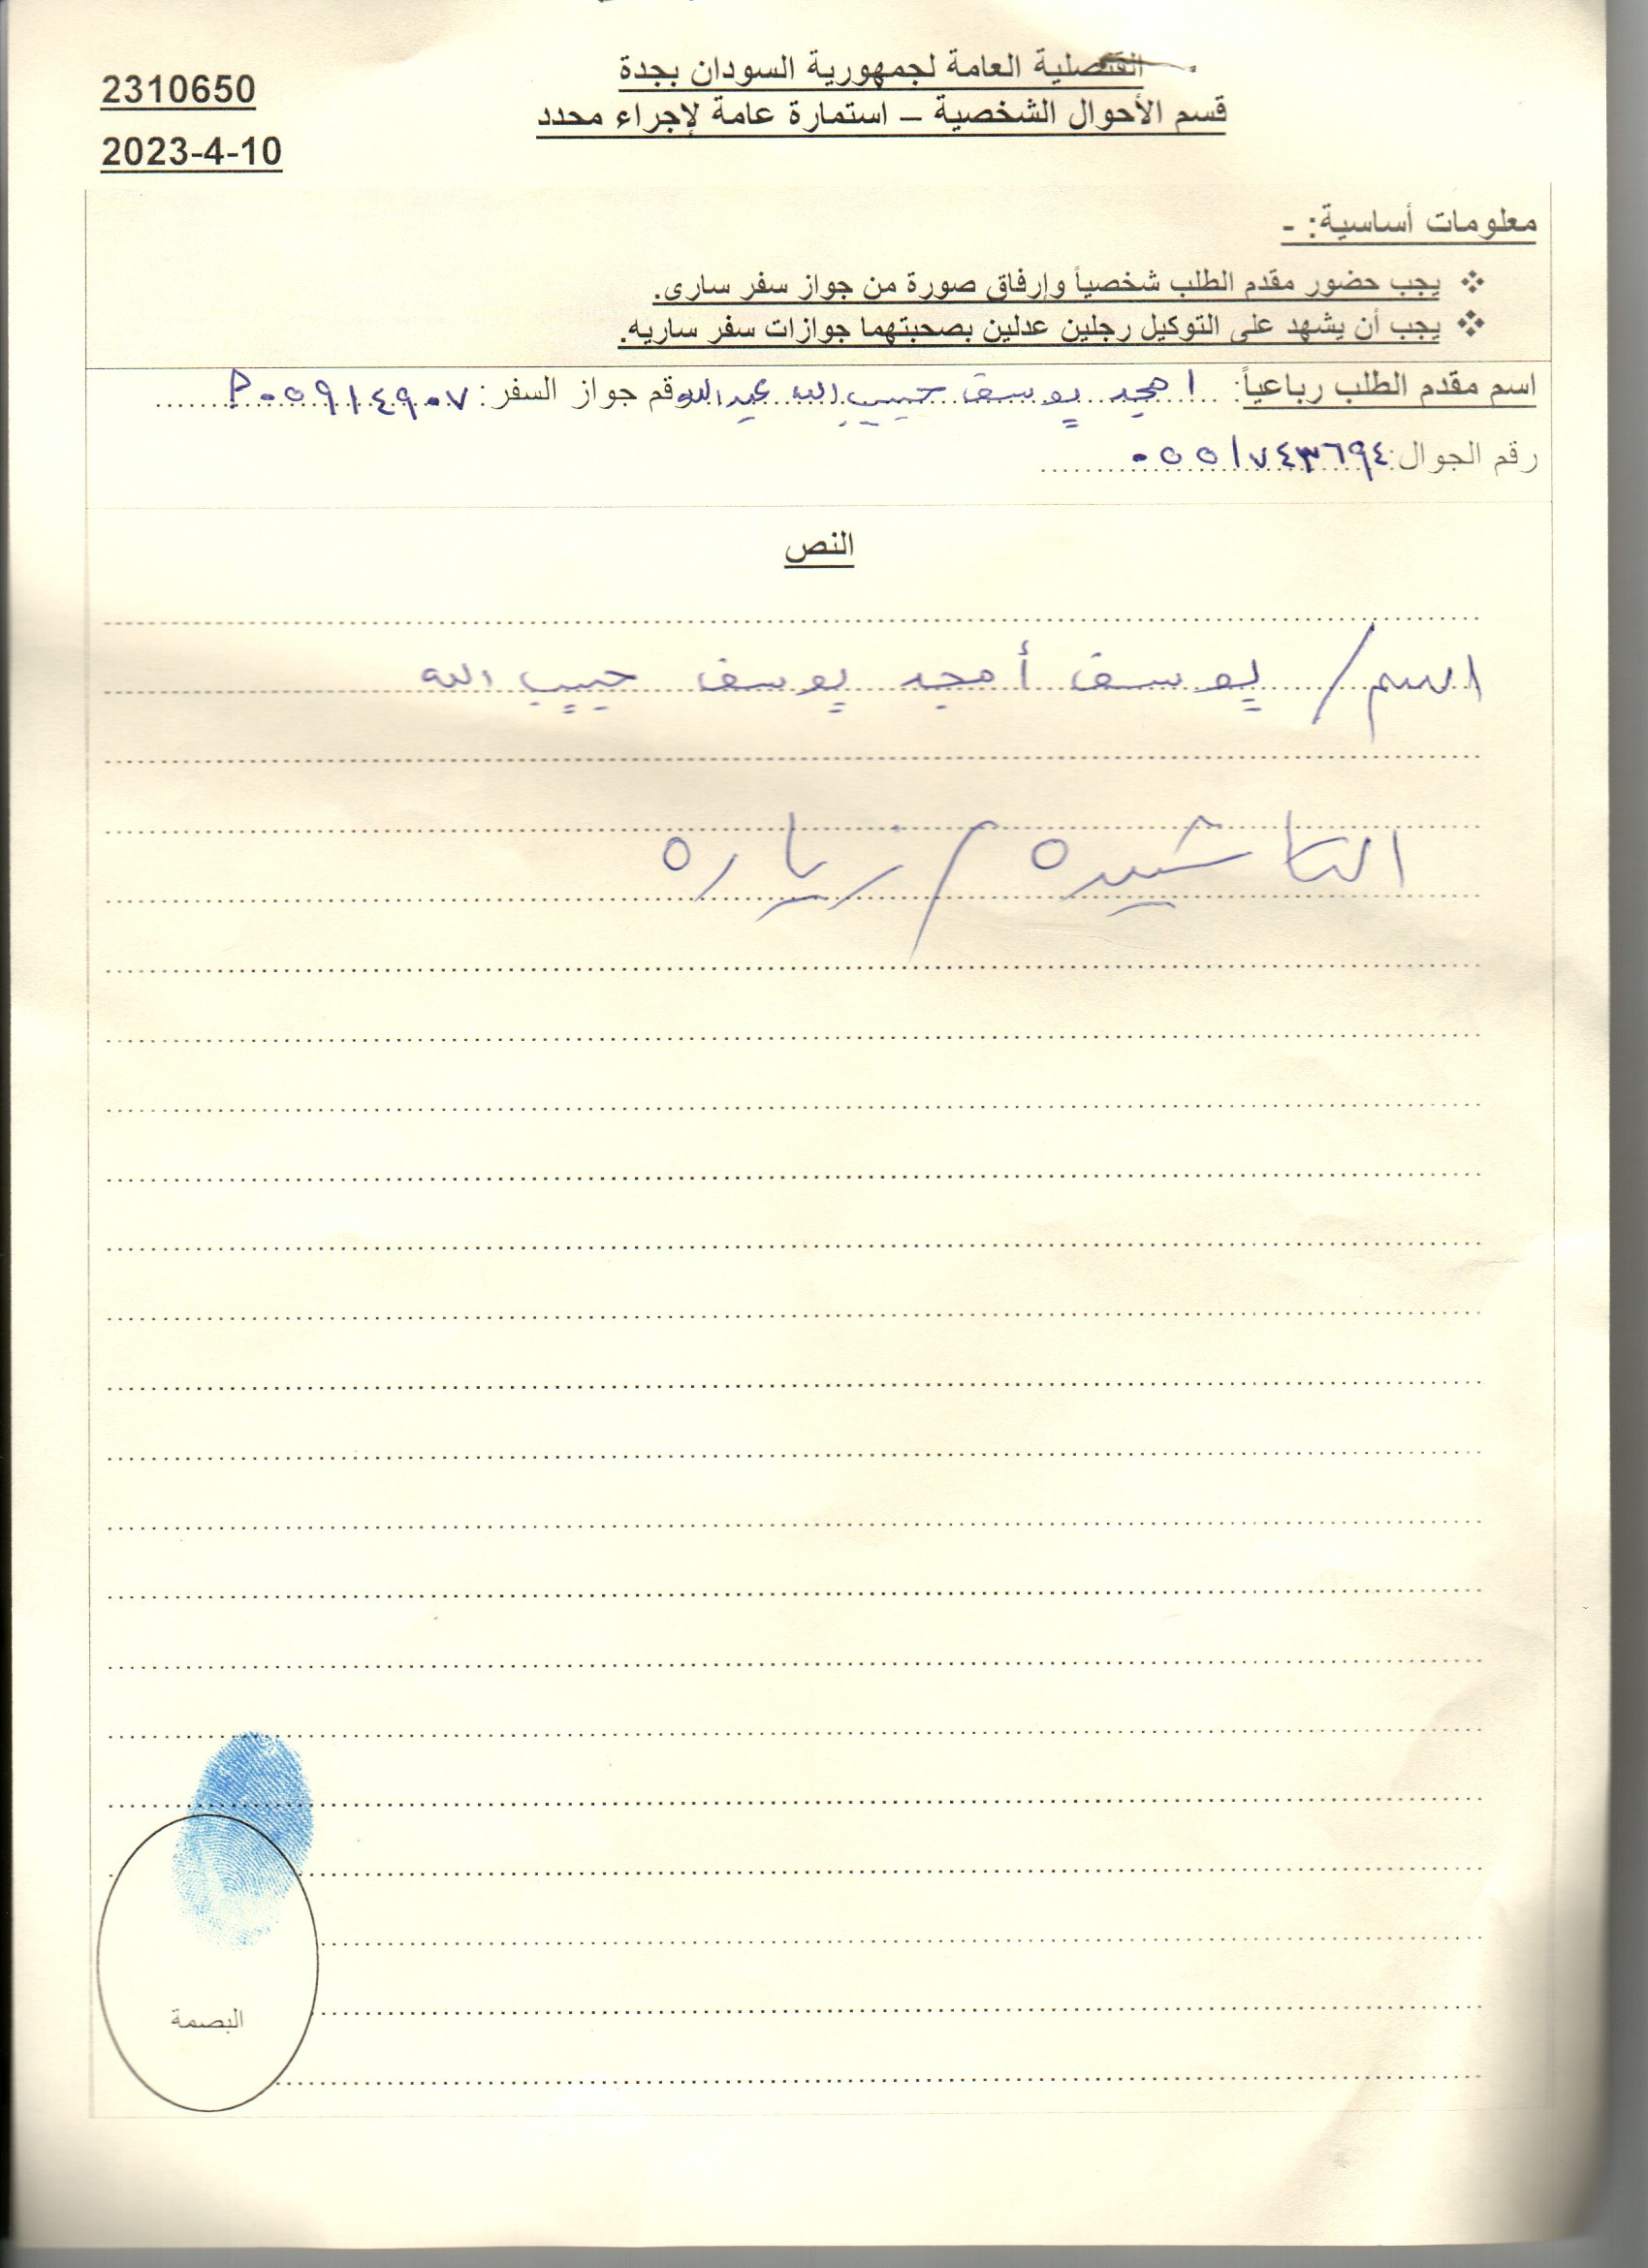 القنصلية العامة لجمهورية السودان بجدة
2310650
قسم الأحوال الشخصية – استمارة عامة لإجراء محدد
2023-4-10
معلومات أساسية: -
❖ يجب حضور مقدم الطلب شخصياً وإرفاق صورة من جواز سفر سارى.
❖ يجب أن يشهد على التوكيل رجلين عدلين بصحبتهما جوازات سفر ساريه.
اسم مقدم الطلب رباعياً: امجد يوسف حبيب الله عبدالله رقم جواز السفر: P٠٥٩١٤٩٠٧
رقم الجوال: ٠٥٥١٧٤٣٦٩٤
النص
الاسم / يوسف أمجد يوسف حبيب الله
التاشيره / زياره
البصمة